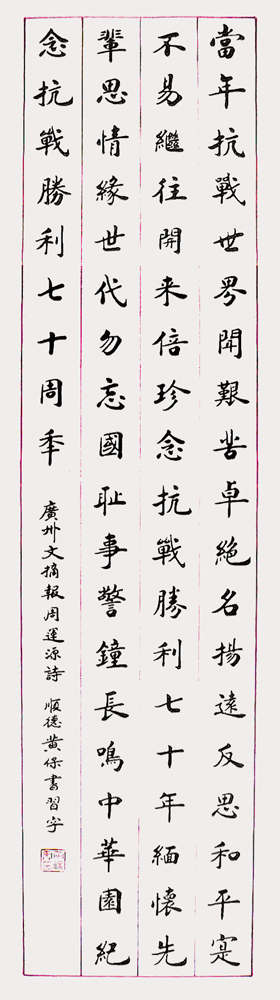 當年抗戰世界聞艱苦卓絕名揚遠反思和平寔
不易繼往開来倍珍念抗戰勝利七十年緬懷先
輩思情緣世代勿忘國耻事警鐘長鳴中華園紀
念抗戰勝利七十周秊
廣州文摘報周運源詩 順德黃保書習字